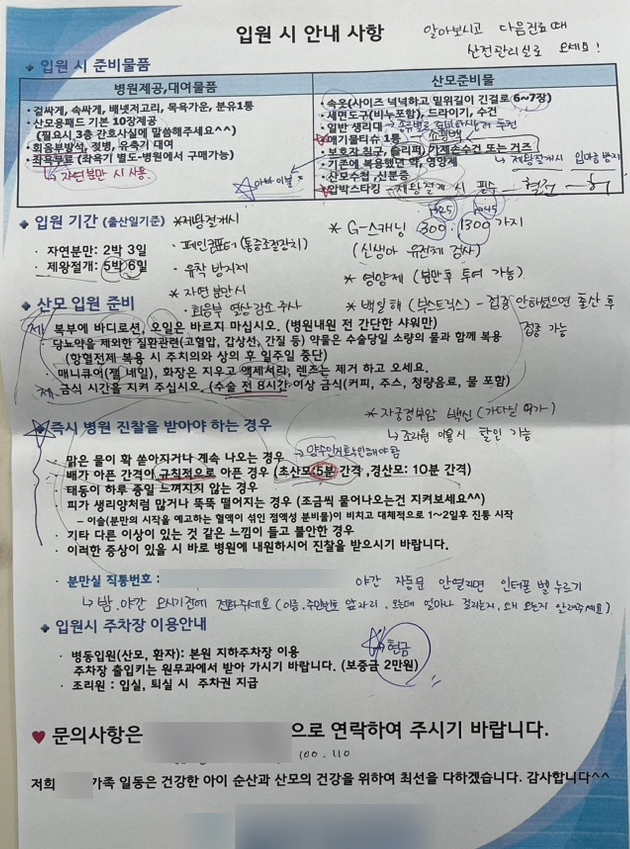 입원 시 안내 사항
알아보시고 다음진료때
산전관리실로 오세요!
입원 시 준비물품
병원제공,대여물품
산모준비물
· 겉싸게, 속싸게, 배넷저고리, 목욕가운, 분유1통
· 산모용패드 기본 10장제공
(필요시 3층 간호사실에 말씀해주세요^^)
· 회음부방석, 젖병, 유축기 대여
· 좌욕무료 (좌욕기 별도-병원에서 구매가능)
↳ 자연분만 시 사용
· 속옷(사이즈 넉넉하고 밑위길이 긴걸로 6~7장)
· 세면도구(비누포함), 드라이기, 수건
· 일반 생리대
· 애기물티슈 1통
· 보호자 침구, 슬리퍼, 가제손수건 또는 거즈
· 기존에 복용했던 약, 영양제
→ 제왕절개시 입마름 방지
· 산모수첩, 신분증
· 압박스타킹 - 제왕절개 시 필수
☆아빠 이불
입원 기간 (출산일기준)
· 자연분만: 2박 3일
· 제왕절개: 5박 6일
*제왕절개시
· 페인컴포터 (통증조절장치)
· 유착 방지제
* 자연 분만시
회음부 염증감소 주사
* G-스캐닝 300 · 1300 가지
(신생아 유전체 검사)
* 영양제 (분만 후 투여 가능)
* 백일해 (부스트릭스) - 접종 안하셨으면 출산 후
접종 가능
산모 입원 준비
제 복부에 바디로션, 오일은 바르지 마십시오. (병원내원 전 간단한 샤워만)
당뇨약을 제외한 질환관련(고혈압, 갑상선, 간질 등) 약물은 수술당일 소량의 물과 함께 복용
(항혈전제 복용 시 주치의와 상의 후 일주일 중단)
· 매니큐어(젤 네일), 화장은 지우고 액세서리, 렌즈는 제거 하고 오세요.
제 금식 시간을 지켜 주십시오. (수술 전 8시간 이상 금식(커피, 주스, 청량음료, 물 포함)
* 자궁경부암 백신 (가다실 9가)
↳ 조리원 이용시 할인 가능
즉시 병원 진찰을 받아야 하는 경우
· 맑은 물이 확 쏟아지거나 계속 나오는 경우
→ 양수인지 확인해야함
· 배가 아픈 간격이 규칙적으로 아픈 경우 (초산모:5분 간격 ,경산모: 10분 간격)
· 태동이 하루 종일 느껴지지 않는 경우
· 피가 생리양처럼 많거나 뚝뚝 떨어지는 경우 (조금씩 묻어나오는건 지켜보세요^^)
– 이슬(분만의 시작을 예고하는 혈액이 섞인 점액성 분비물)이 비치고 대체적으로 1~2일후 진통 시작
· 기타 다른 이상이 있는 것 같은 느낌이 들고 불안한 경우
· 이러한 증상이 있을 시 바로 병원에 내원하시어 진찰을 받으시기 바랍니다.
· 분만실 직통번호 :
야간 자동문 안열리면 인터폰 벨 누르기
↳ 밤. 야간 오시기전에 전화주세요 (이름, 주민번호 앞자리, 오는데 얼마나 걸리는지, 왜 오는지 알려주세요)
입원시 주차장 이용안내
☆현금
· 병동입원(산모, 환자): 본원 지하주차장 이용
주차장 출입키는 원무과에서 받아 가시기 바랍니다. (보증금 2만원)
· 조리원 : 입실, 퇴실 시 주차권 지급
♥ 문의사항은 으로 연락하여 주시기 바랍니다.
100 . 110
저희 가족 일동은 건강한 아이 순산과 산모의 건강을 위하여 최선을 다하겠습니다. 감사합니다^^